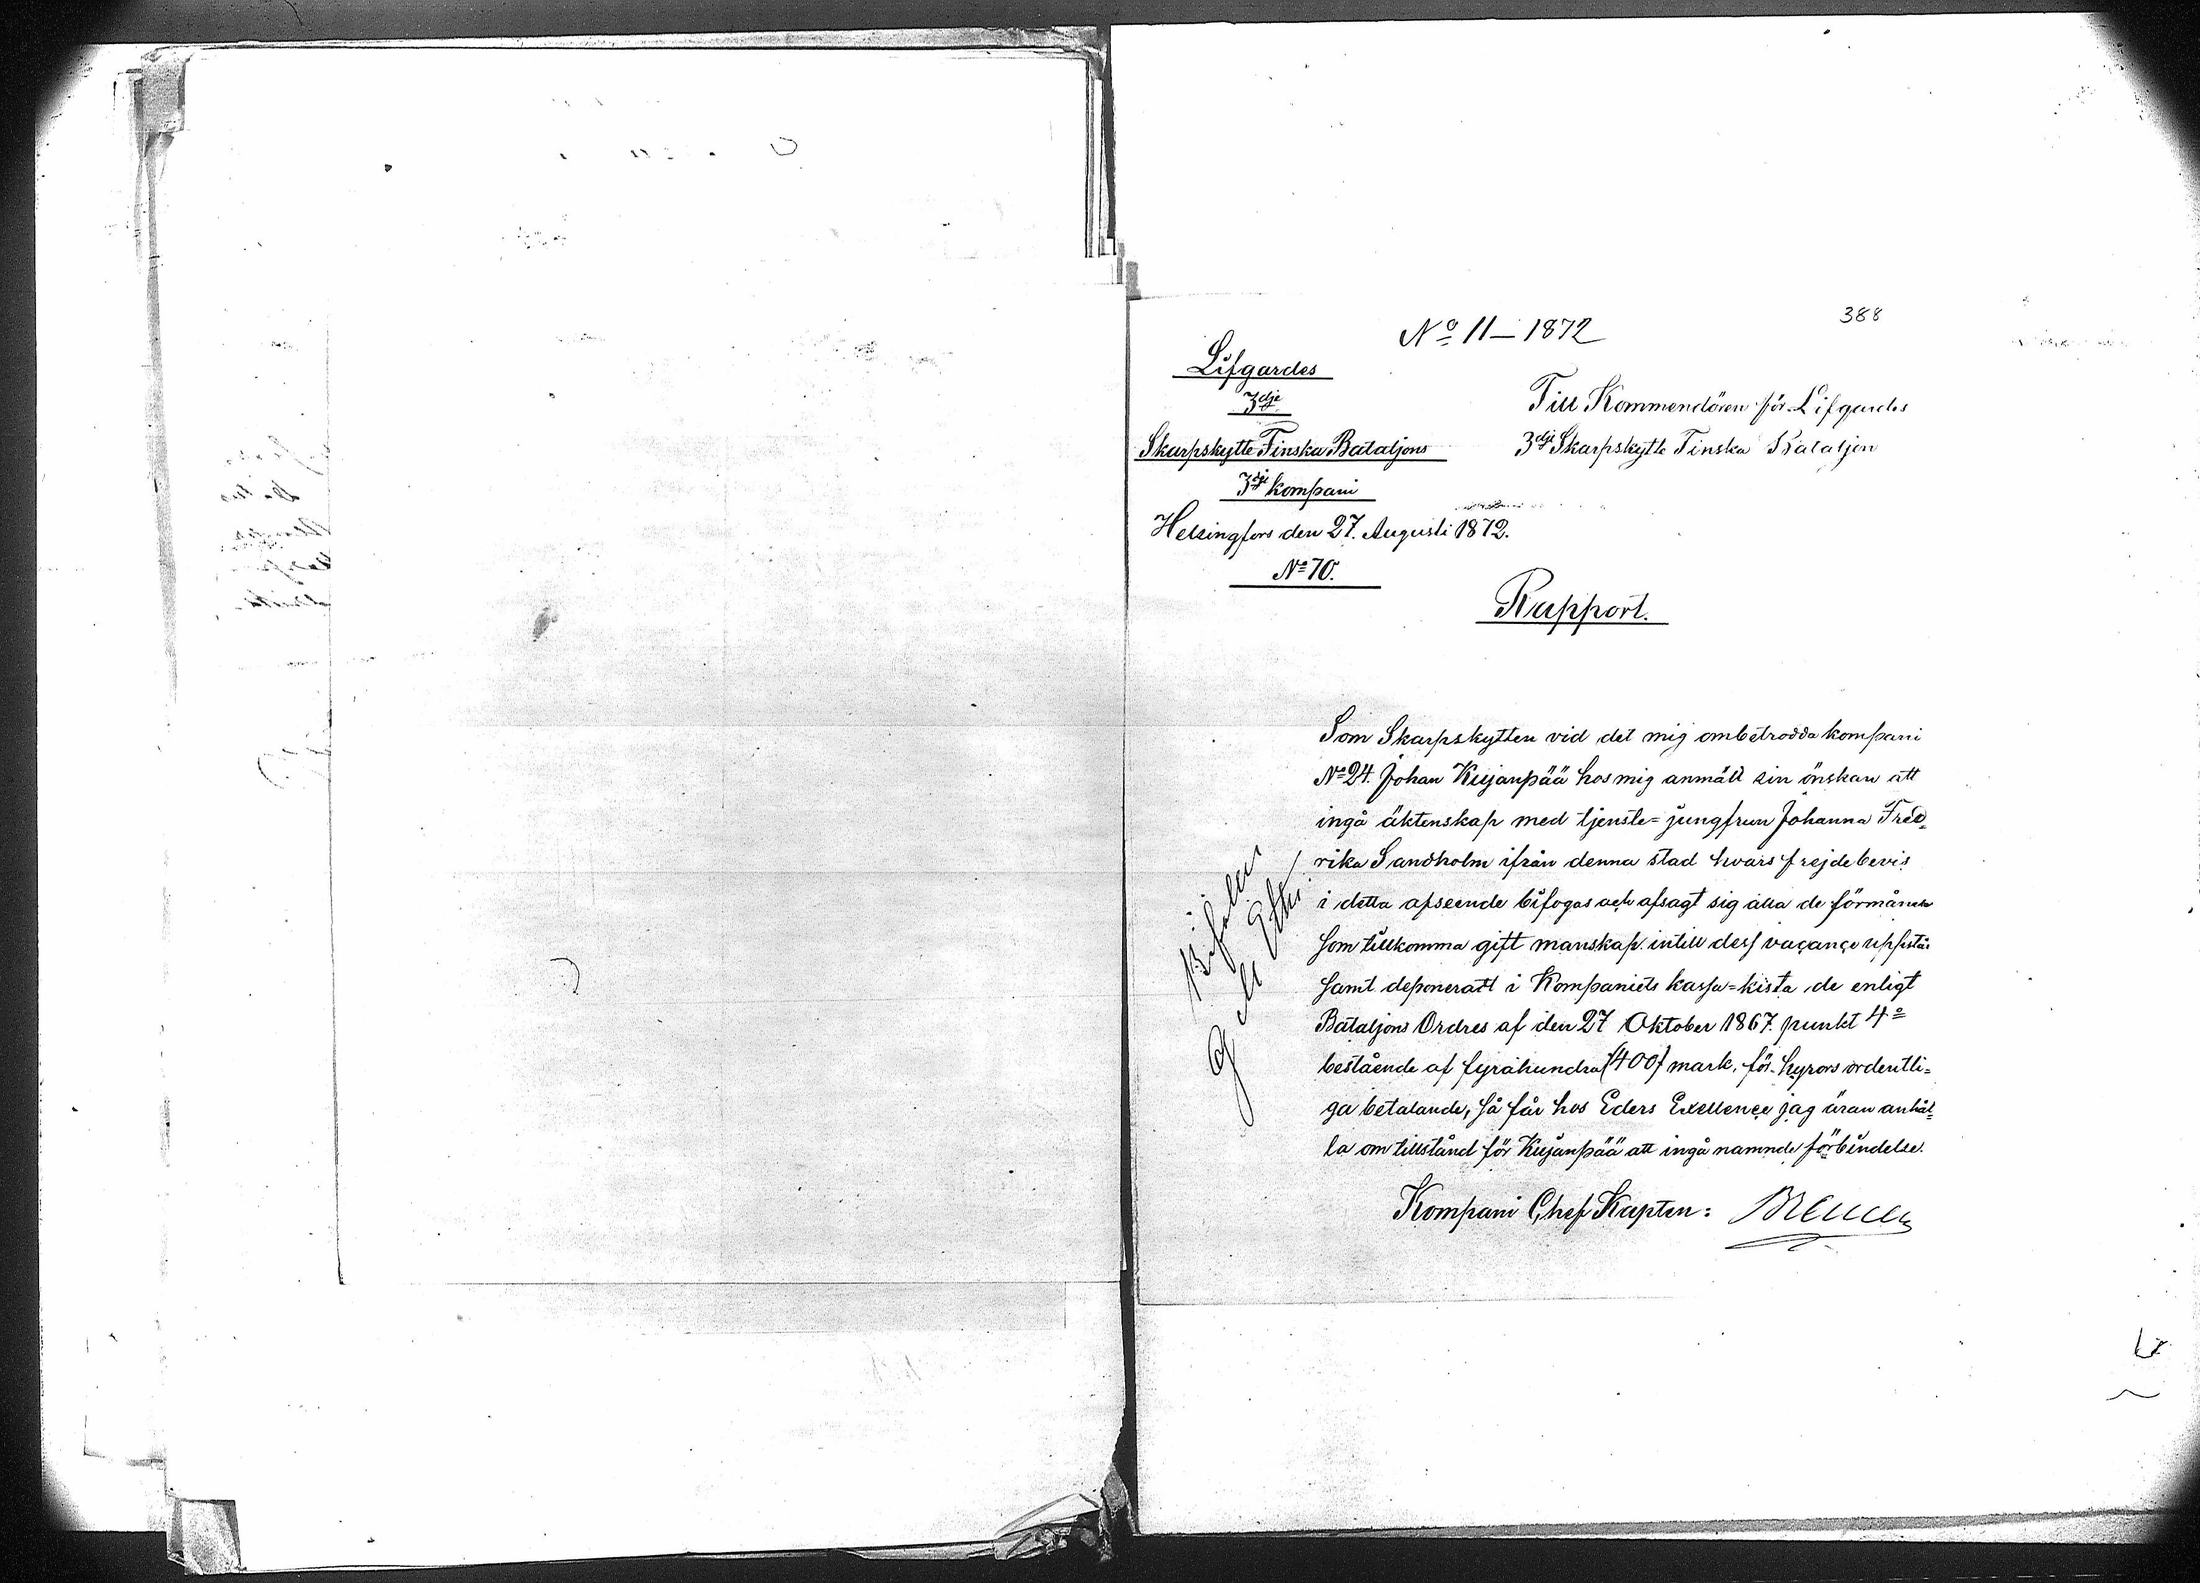 388
No 11–1872
Lifgardes
3dje
Skarpskytte Finska Bataljons
3dje Kompani
Helsingfors den 27. Augusti 1872.
No 70.
Till Kommendören för Lifgardes
3dje Skarpskytte Finska Bataljon
Rapport.
Som Skarpskytten vid det mig ombetrodda kompani
No 24. Johan Kujanpää hos mig anmält sin önskan att
ingå äktenskap med tjenste=jungfrun Johanna Fred=
rika Sandholm ifrån denna stad hvars frejdebevis
i detta afseende bifogas och afsagt sig alla de förmåner
som tillkomma gift manskap intill dess vacance uppstår
samt deponeratt i Kompaniets kassa=kista de enligt
Bataljons Ordres af den 27 Oktober 1867. punkt 4o
bestående af fyrahundra (400) mark, för hyrors ordentli=
ga betalande, så får hos Eders Exellence jag äran anhål=
la om tillstånd för Kujanpää att ingå namnde förbindelse.
Kompani Chef Kapten:
Bifalles